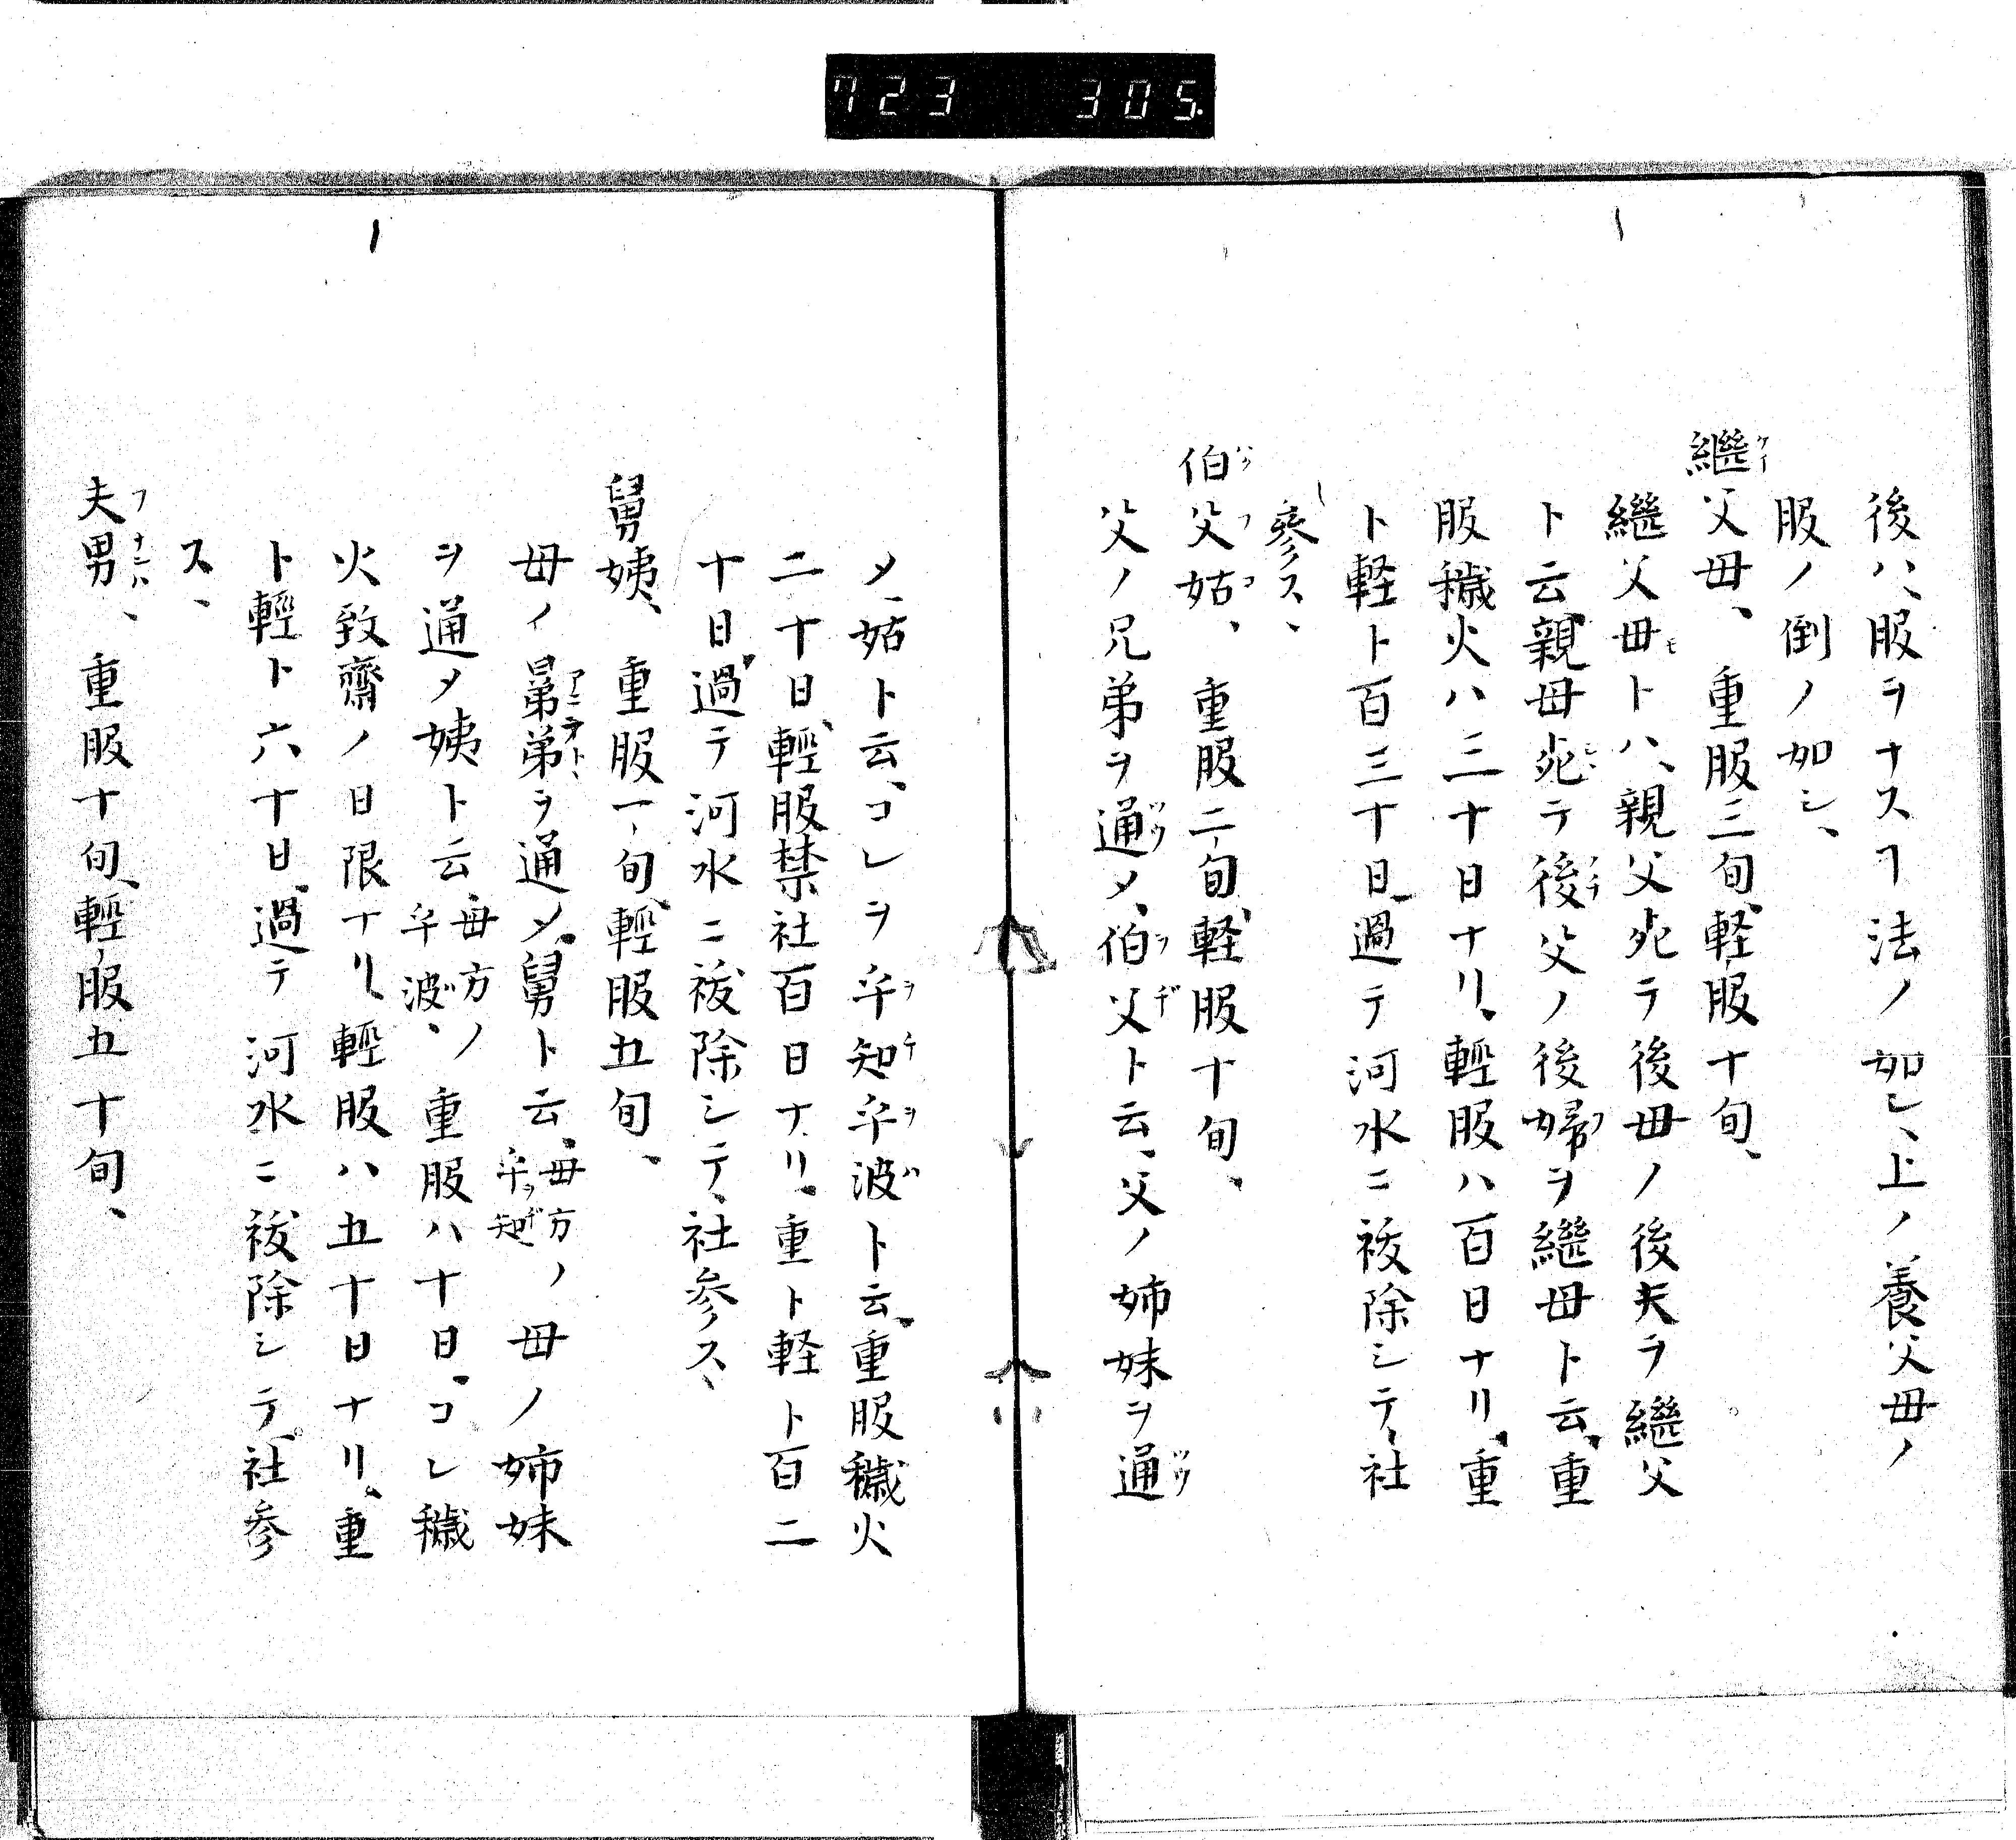 723 305.
後ハ、服ヲナスヿ法ノ如シ、上ノ養父母ノ
服ノ倒ノ如シ、
繼父母、重服三旬、軽服十旬、
繼父母トハ、親父死テ後母ノ後夫ヲ繼父
ト云、親母死テ後父ノ後婦ヲ繼母ト云、重
服穢火ハ三十日ナリ、輕服ハ百日ナリ、重
ト軽ト百三十日過テ河水ニ祓除シテ、社
參ス、
伯父姑、重服二旬、軽服十旬、
父ノ兄弟ヲ通メ、伯父ト云、父ノ姉妹ヲ通
メ、姑ト云、コレヲ乎知乎波ト云、重服穢火
二十日、輕服禁社百日ナリ、重ト軽ト百二
十日過テ河水ニ祓除シテ、社参ス、
舅姨、重服一旬、輕服五旬、
母ノ昆弟ヲ通メ、舅ト云、母方ノ乎知、母ノ姉妹
ヲ通メ姨ト云、母方ノ乎波、重服ハ十日、コレ穢
火致齋ノ日限ナリ、輕服ハ五十日ナリ、重
ト輕ト六十日過テ河水ニ祓除シテ、社参
ス、
夫男、重服十旬、輕服五十旬、